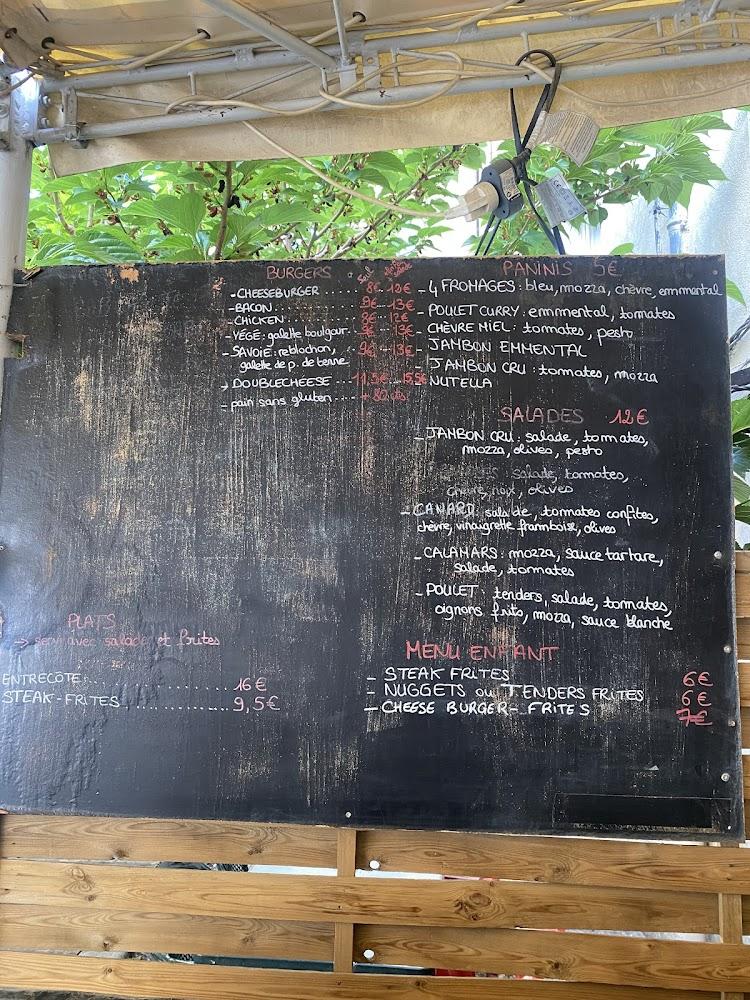 BURGERS
Seul
- CHEESEBURGER ......... 8€ - 12€
- BACON ......... 9€ - 13€
- CHICKEN ......... 8€ - 12€
- VÉGÉ: galette boulgour... 9€ - 13€
- SAVOIE: reblochon, ... 9€ - 13€
galette de p. de terre
- DOUBLECHEESE ... 11,5€ ... 15,5€
- pain sans gluten ....
PANINIS 5€
- 4 FROMAGES: bleu, mozza, chèvre, emmental
- POULET CURRY: emmental, tomates
- CHÈVRE MIEL: tomates, pesto
- JAMBON EMMENTAL
- JAMBON CRU: tomates, mozza
- NUTELLA
SALADES 12€
- JAMBON CRU: salade, tomates,
mozza, olives, pesto
salade, tomates,
chèvre, noix, olives
- CANARD: salade, tomates confites,
chèvre, vinaigrette framboise, olives
- CALAMARS: mozza, sauce tartare,
salade, tomates
- POULET: tenders, salade, tomates,
oignons frits, mozza, sauce blanche
PLATS
→ servi avec salade et frites
ENTRECÔTE ............ 16€
STEAK-FRITES ............ 9,5€
MENU ENFANT
- STEAK FRITES 6€
- NUGGETS ou TENDERS FRITES 6€
- CHEESE BURGER - FRITES 7€